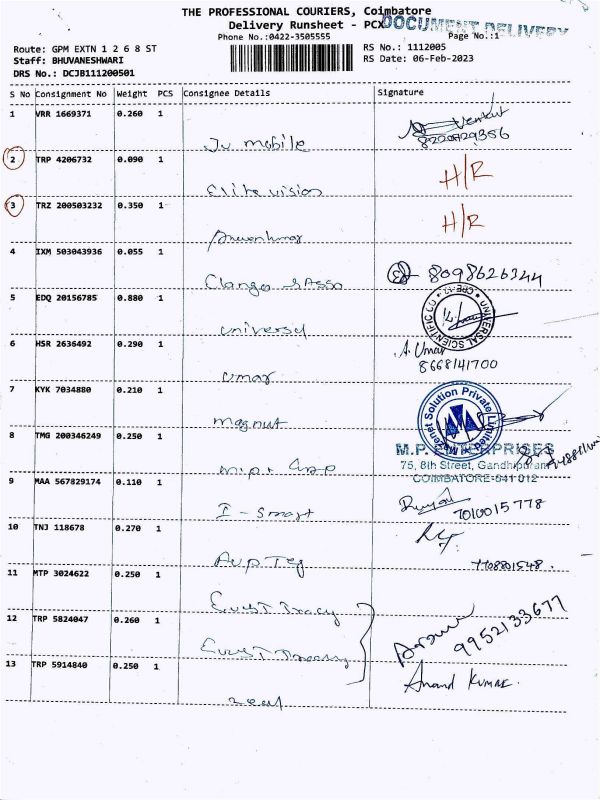 THE PROFESSIONAL COURIERS, Coimbatore
Delivery Runsheet - PCX
DOCUMENT DELIVERY
Phone No.:0422-3505555
Page No.:1
Route: GPM EXTN 1 2 6 8 ST
RS No.: 1112005
Staff: BHUVANESHWARI
RS Date: 06-Feb-2023
DRS No.: DCJB111200501
S No Consignment No Weight PCS Consignee Details Signature
1 VRR 1669371 0.260 1
Ju mobile
Venkat
8220729356
2 TRP 4206732 0.090 1
Elite vision
H/R
3 TRZ 200503232 0.350 1
H/R
4 IXM 503043936 0.055 1
8098626344
5 EDQ 20156785 0.880 1
universal
UNIVERSAL SCIENTIFIC CO
CBE-12
6 HSR 2636492 0.290 1
umar
A. Umar
8668141700
7 KYK 7034880 0.210 1
Magnut
Mazenet Solution Private Limited
8 TMG 200346249 0.250 1
M.P. ENTERPRISES
75, 8th Street, Gandhipuram
COIMBATORE-641 012
9 MAA 567829174 0.110 1
I - Smart
7010015778
10 TNJ 118678 0.270 1
11 MTP 3024622 0.250 1
12 TRP 5824047 0.260 1
9952133677
13 TRP 5914840 0.250 1
Anand Kumar.